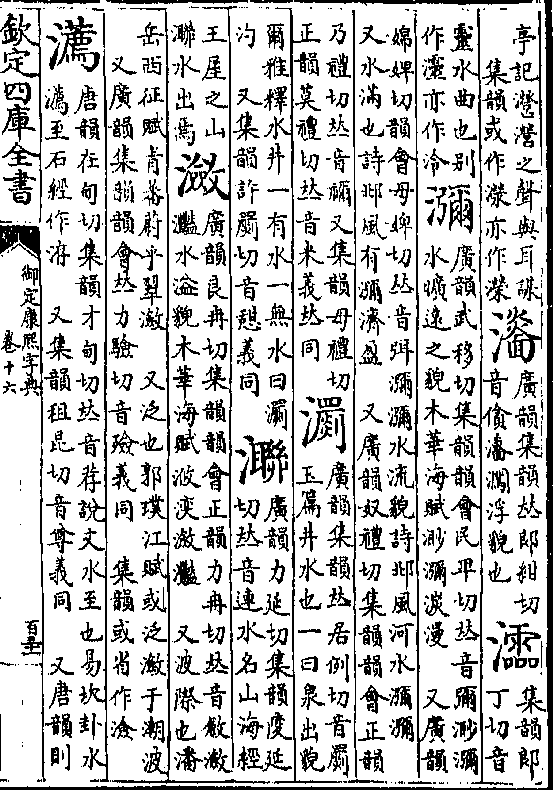 亭記濙濙之聲與耳謀
集韻或作濴亦作濚
㶑廣韻集韻𠀤郎紺切
音㑣㶑灡浮貌也
㶖集韻郎
丁切音
靈水曲也别
作灵亦作泠
瀰廣韻武移切集韻韻會民卑切𠀤音彌渺瀰
水曠遠之貌木華海賦渺瀰湠漫 又廣韻
綿婢切韻會母婢切𠀤音弭瀰瀰水流貌詩邶風河水瀰瀰
又水滿也詩邶風有瀰濟盈 又廣韻奴禮切集韻韻會正韻
乃禮切𠀤音禰又集韻母禮切
正韻莫禮切𠀤音米義𠀤同
瀱廣韻集韻𠀤居例切音罽
玉篇井水也一曰泉出貌
爾雅釋水井一有水一無水曰瀱
汋 又集韻訐罽切音憇義同
㶌廣韻力延切集韻陵延
切𠀤音連水名山海經
王屋之山
㶌水出焉
瀲廣韻良冉切集韻韻會正韻力冉切𠀤音斂瀲
灩水溢貌木華海賦浟㴒瀲灩 又波際也潘
岳西征賦青蕃蔚乎翠瀲 又泛也郭璞江賦或泛瀲于潮波
又廣韻集韻韻會𠀤力驗切音殮義同 集韻或省作澰
瀳唐韻在甸切集韻才甸切𠀤音荐說文水至也易坎卦水
瀳至石經作洊 又集韻徂昆切音尊義同 又唐韻則
欽定四庫全書
御定康熙字典
卷十六